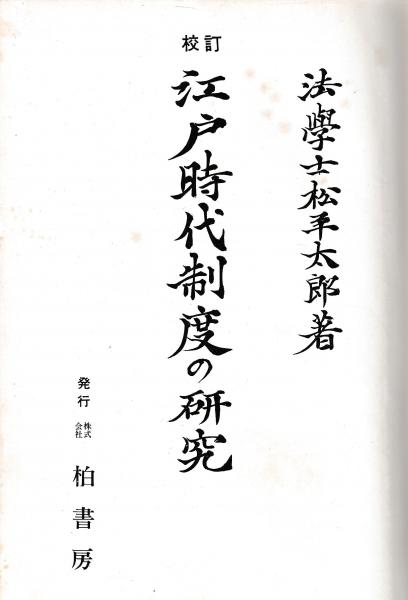 法學士松平太郎著
校訂
江戸時代制度の研究
発行 株式会社 柏書房